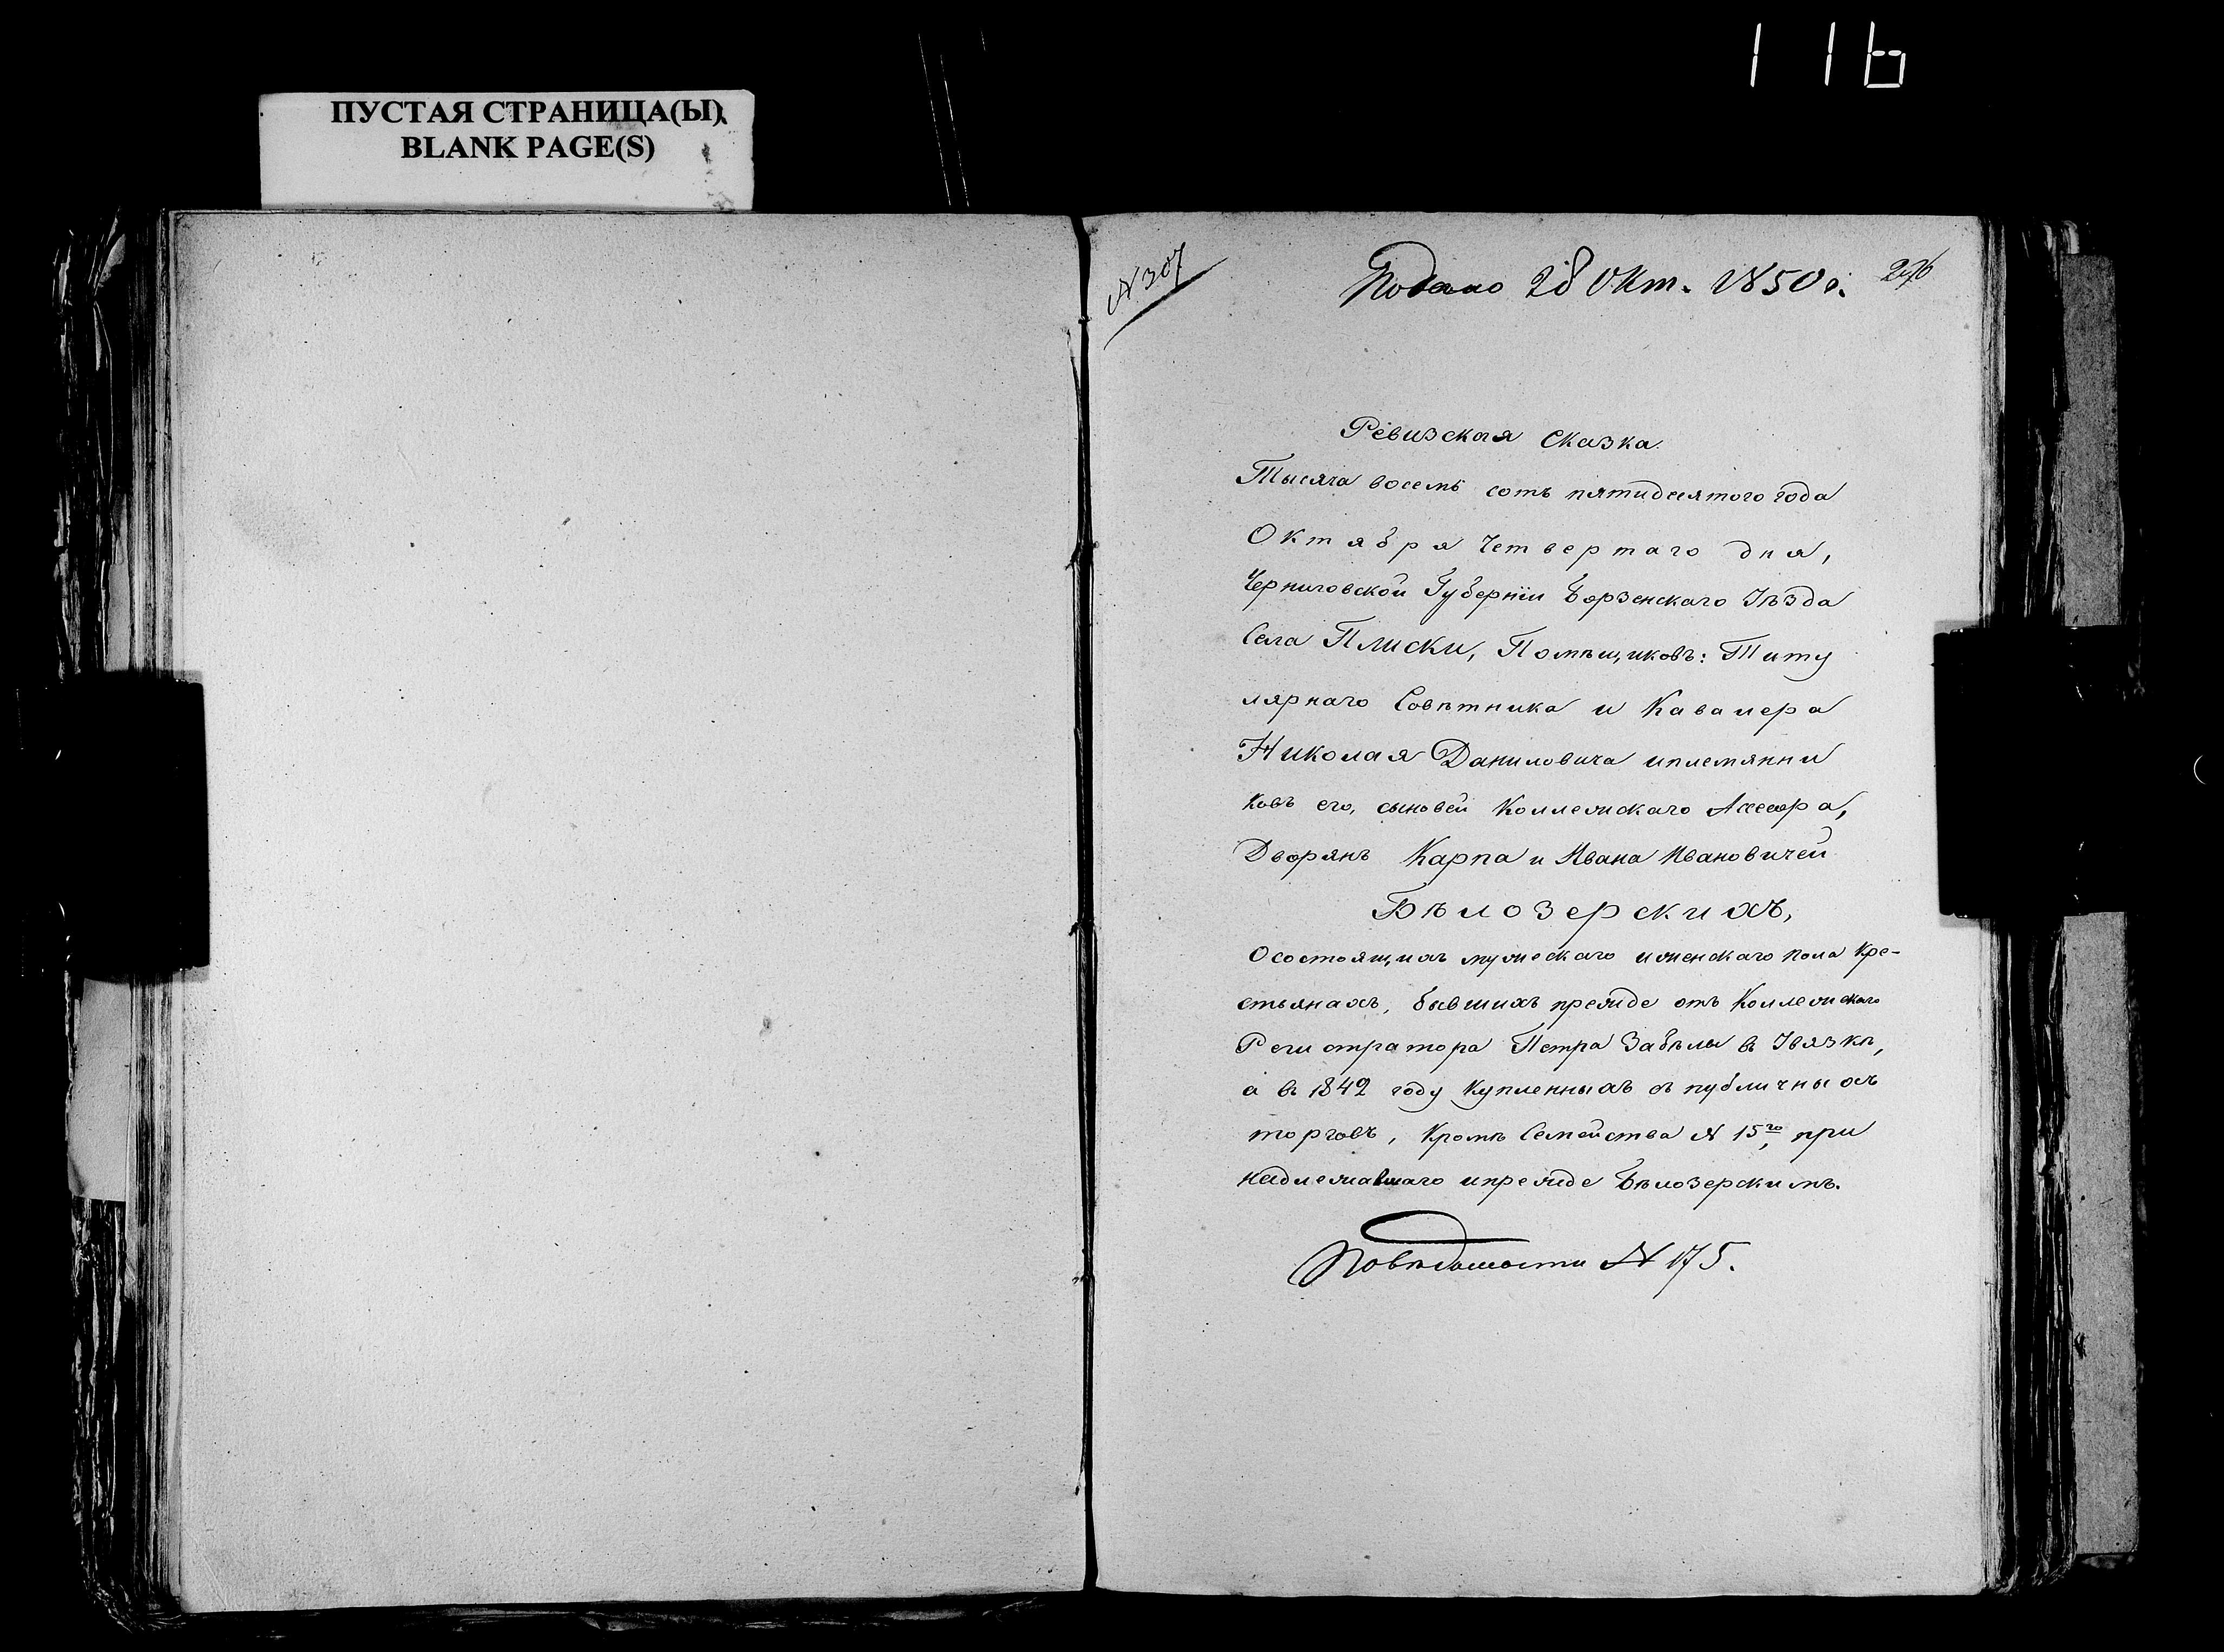 116
ПУСТАЯ СТРАНИЦА(Ы)
BLANK PAGE(S)
№ 307
Подано 28 Окт. 1850 г.
276
Ревизская Сказка
Тысяча восемь сотъ пятидесятого года
Октября Четвертаго дня,
Черниговской Губерніи Борзенскаго Уѣзда
Села Плиски, Помѣщиковъ: Титу
лярнаго Совѣтника и Кавалера
Николая Даниловича и племянни
ковъ его, сыновей Коллежскаго Ассесора,
Дворянъ Карпа и Ивана Ивановичей
Бѣлозерскихъ,
О состоящихъ мужескаго и женскаго пола кре-
стьянахъ, бывшихъ прежде отъ Коллежскаго
Регистратора Петра Забѣлы въ Увязкѣ,
а въ 1842 году Купленныхъ съ публичныхъ
торговъ, Кромѣ Семейства № 15го, при
надлежавшаго и прежде Бѣлозерскимъ.
По вѣдомости № 175.